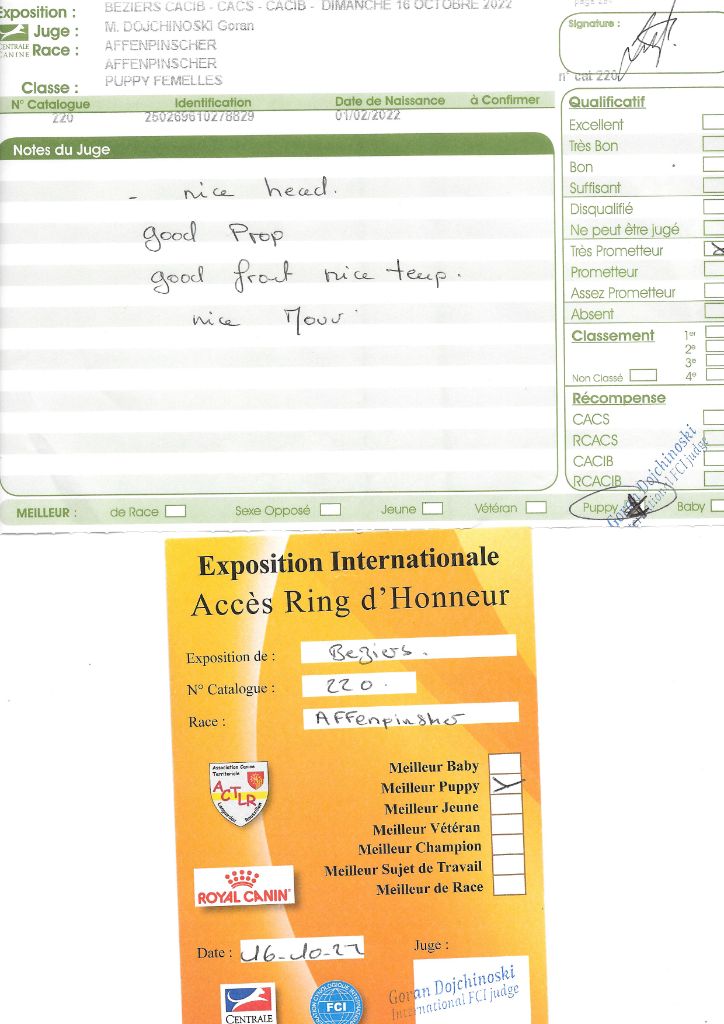 Exposition : BEZIERS CACIB - CACS - CACIB - DIMANCHE 16 OCTOBRE 2022
Juge : M. DOJCHINOSKI Goran
CENTRALE
CANINE
Race : AFFENPINSCHER
AFFENPINSCHER
Classe : PUPPY FEMELLES
Signature :
n° cat 220
N° Catalogue Identification Date de Naissance à Confirmer
220 250269610278829 01/02/2022
Notes du Juge
- nice head.
good Prop
good front nice temp.
nice Mouv
Qualificatif
Excellent
Très Bon
Bon
Suffisant
Disqualifié
Ne peut être jugé
Très Prometteur
Prometteur
Assez Prometteur
Absent
Classement 1er
2e
3e
Non Classé 4e
Récompense
CACS
RCACS
CACIB
RCACIB
Goran Dojchinoski
International FCI judge
MEILLEUR : de Race Sexe Opposé Jeune Vétéran Puppy Baby
Exposition Internationale
Accès Ring d'Honneur
Exposition de : Beziers.
N° Catalogue : 220.
Race : AFFenpinsher
Association Canine
Territoriale
ACTLR
Languedoc Roussillon
Meilleur Baby
Meilleur Puppy
Meilleur Jeune
Meilleur Vétéran
Meilleur Champion
Meilleur Sujet de Travail
Meilleur de Race
ROYAL CANIN
Date : 16-10-22
Juge :
Goran Dojchinoski
International FCI judge
CENTRALE
FCI